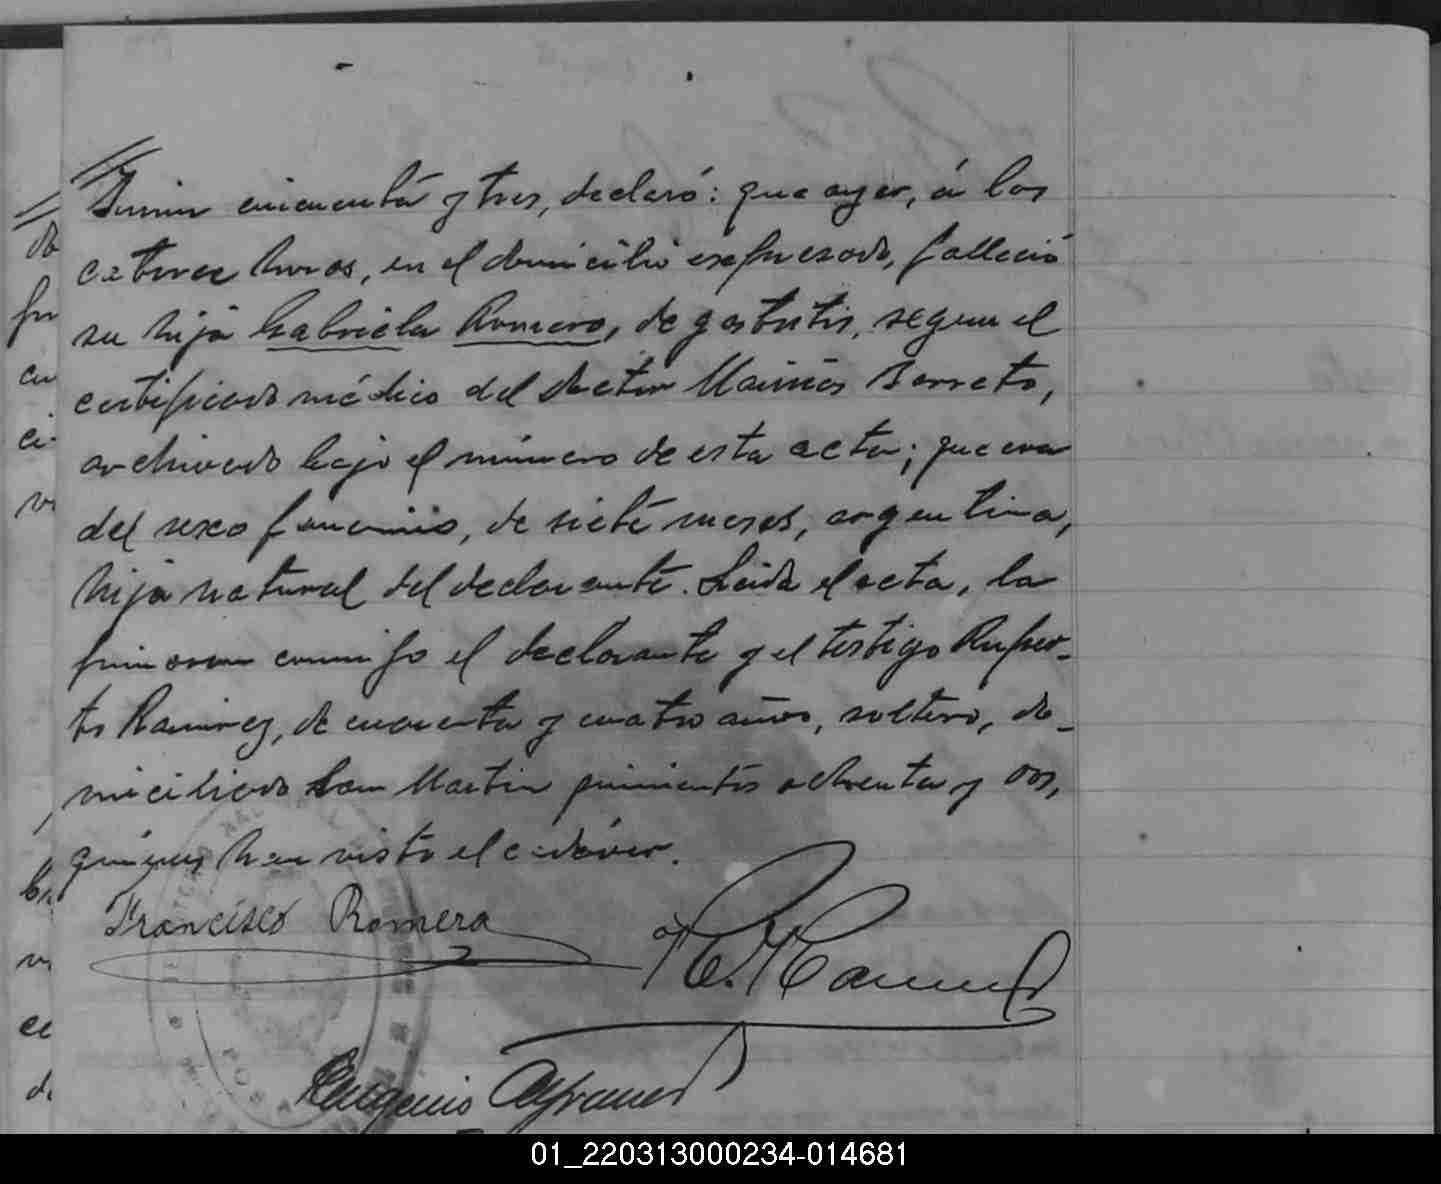 cincuenta y tres, declaró: que ayer, á las
catorce horas, en el domicilio expresado, falleció
su hija Gabriela Romero, de gastritis, segun el
certificado médico del doctor Barreto,
archivado bajo el número de esta acta; que era
del sexo femenino, de siete meses, argentina,
hija natural del declarante. Leida el acta, la
firmaron conmigo el declarante y el testigo Ruper-
to Ramirez, de cuarenta y cuatro años, soltero, do-
miciliado San Martin quinientos ochenta y dos,
quienes han visto el cadáver.
Francisco Romero
R. Ramirez
Eugenio
01_220313000234-014681